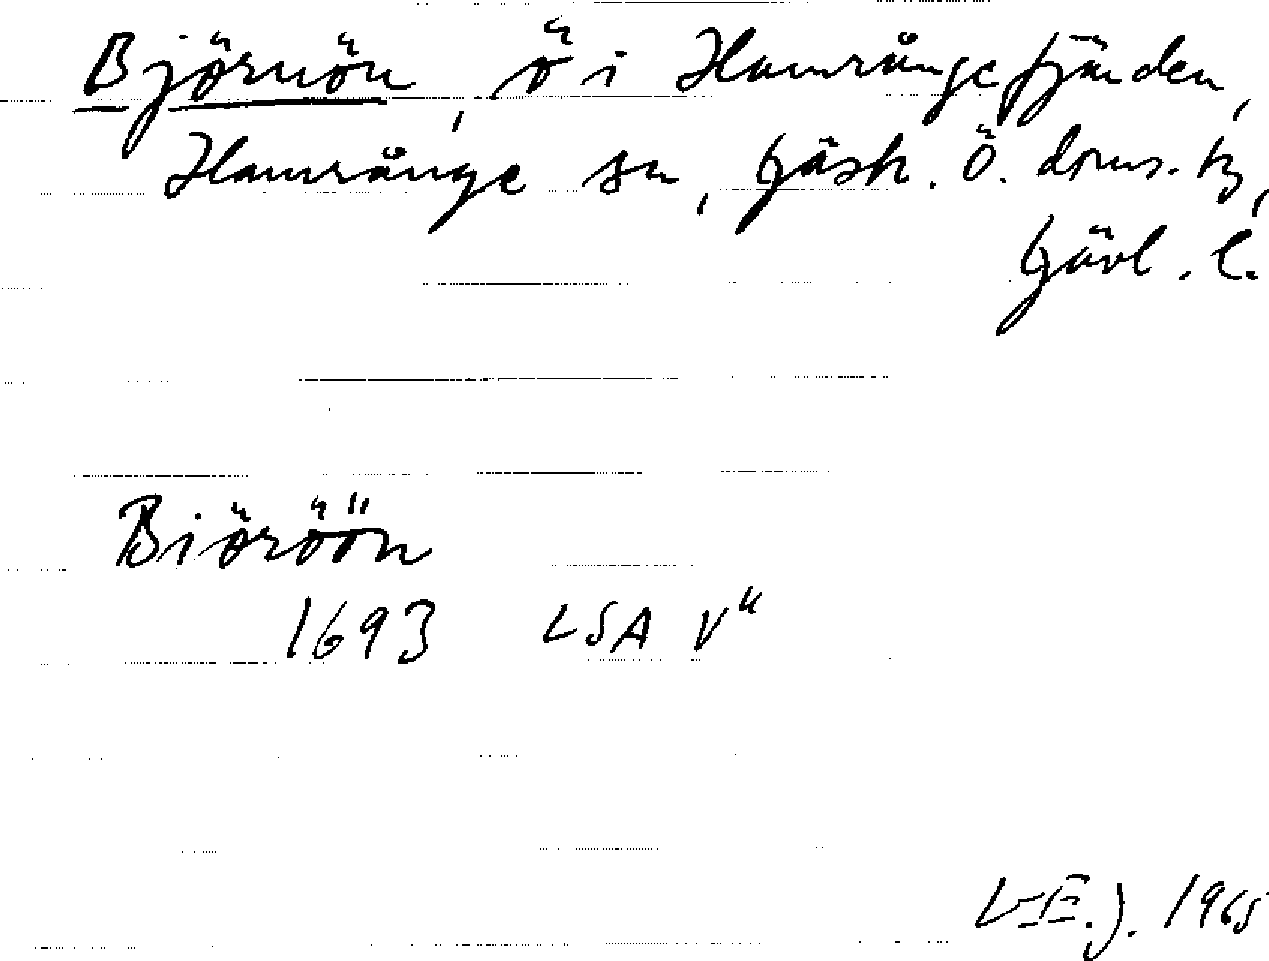 Björnön, ö i Hamrångefjärden,
Hamrånge sn, Gäsh. Ö. doms. tg,
Gävl. l.
Biöröön
1693 LSA V"
L-E.J. 1965